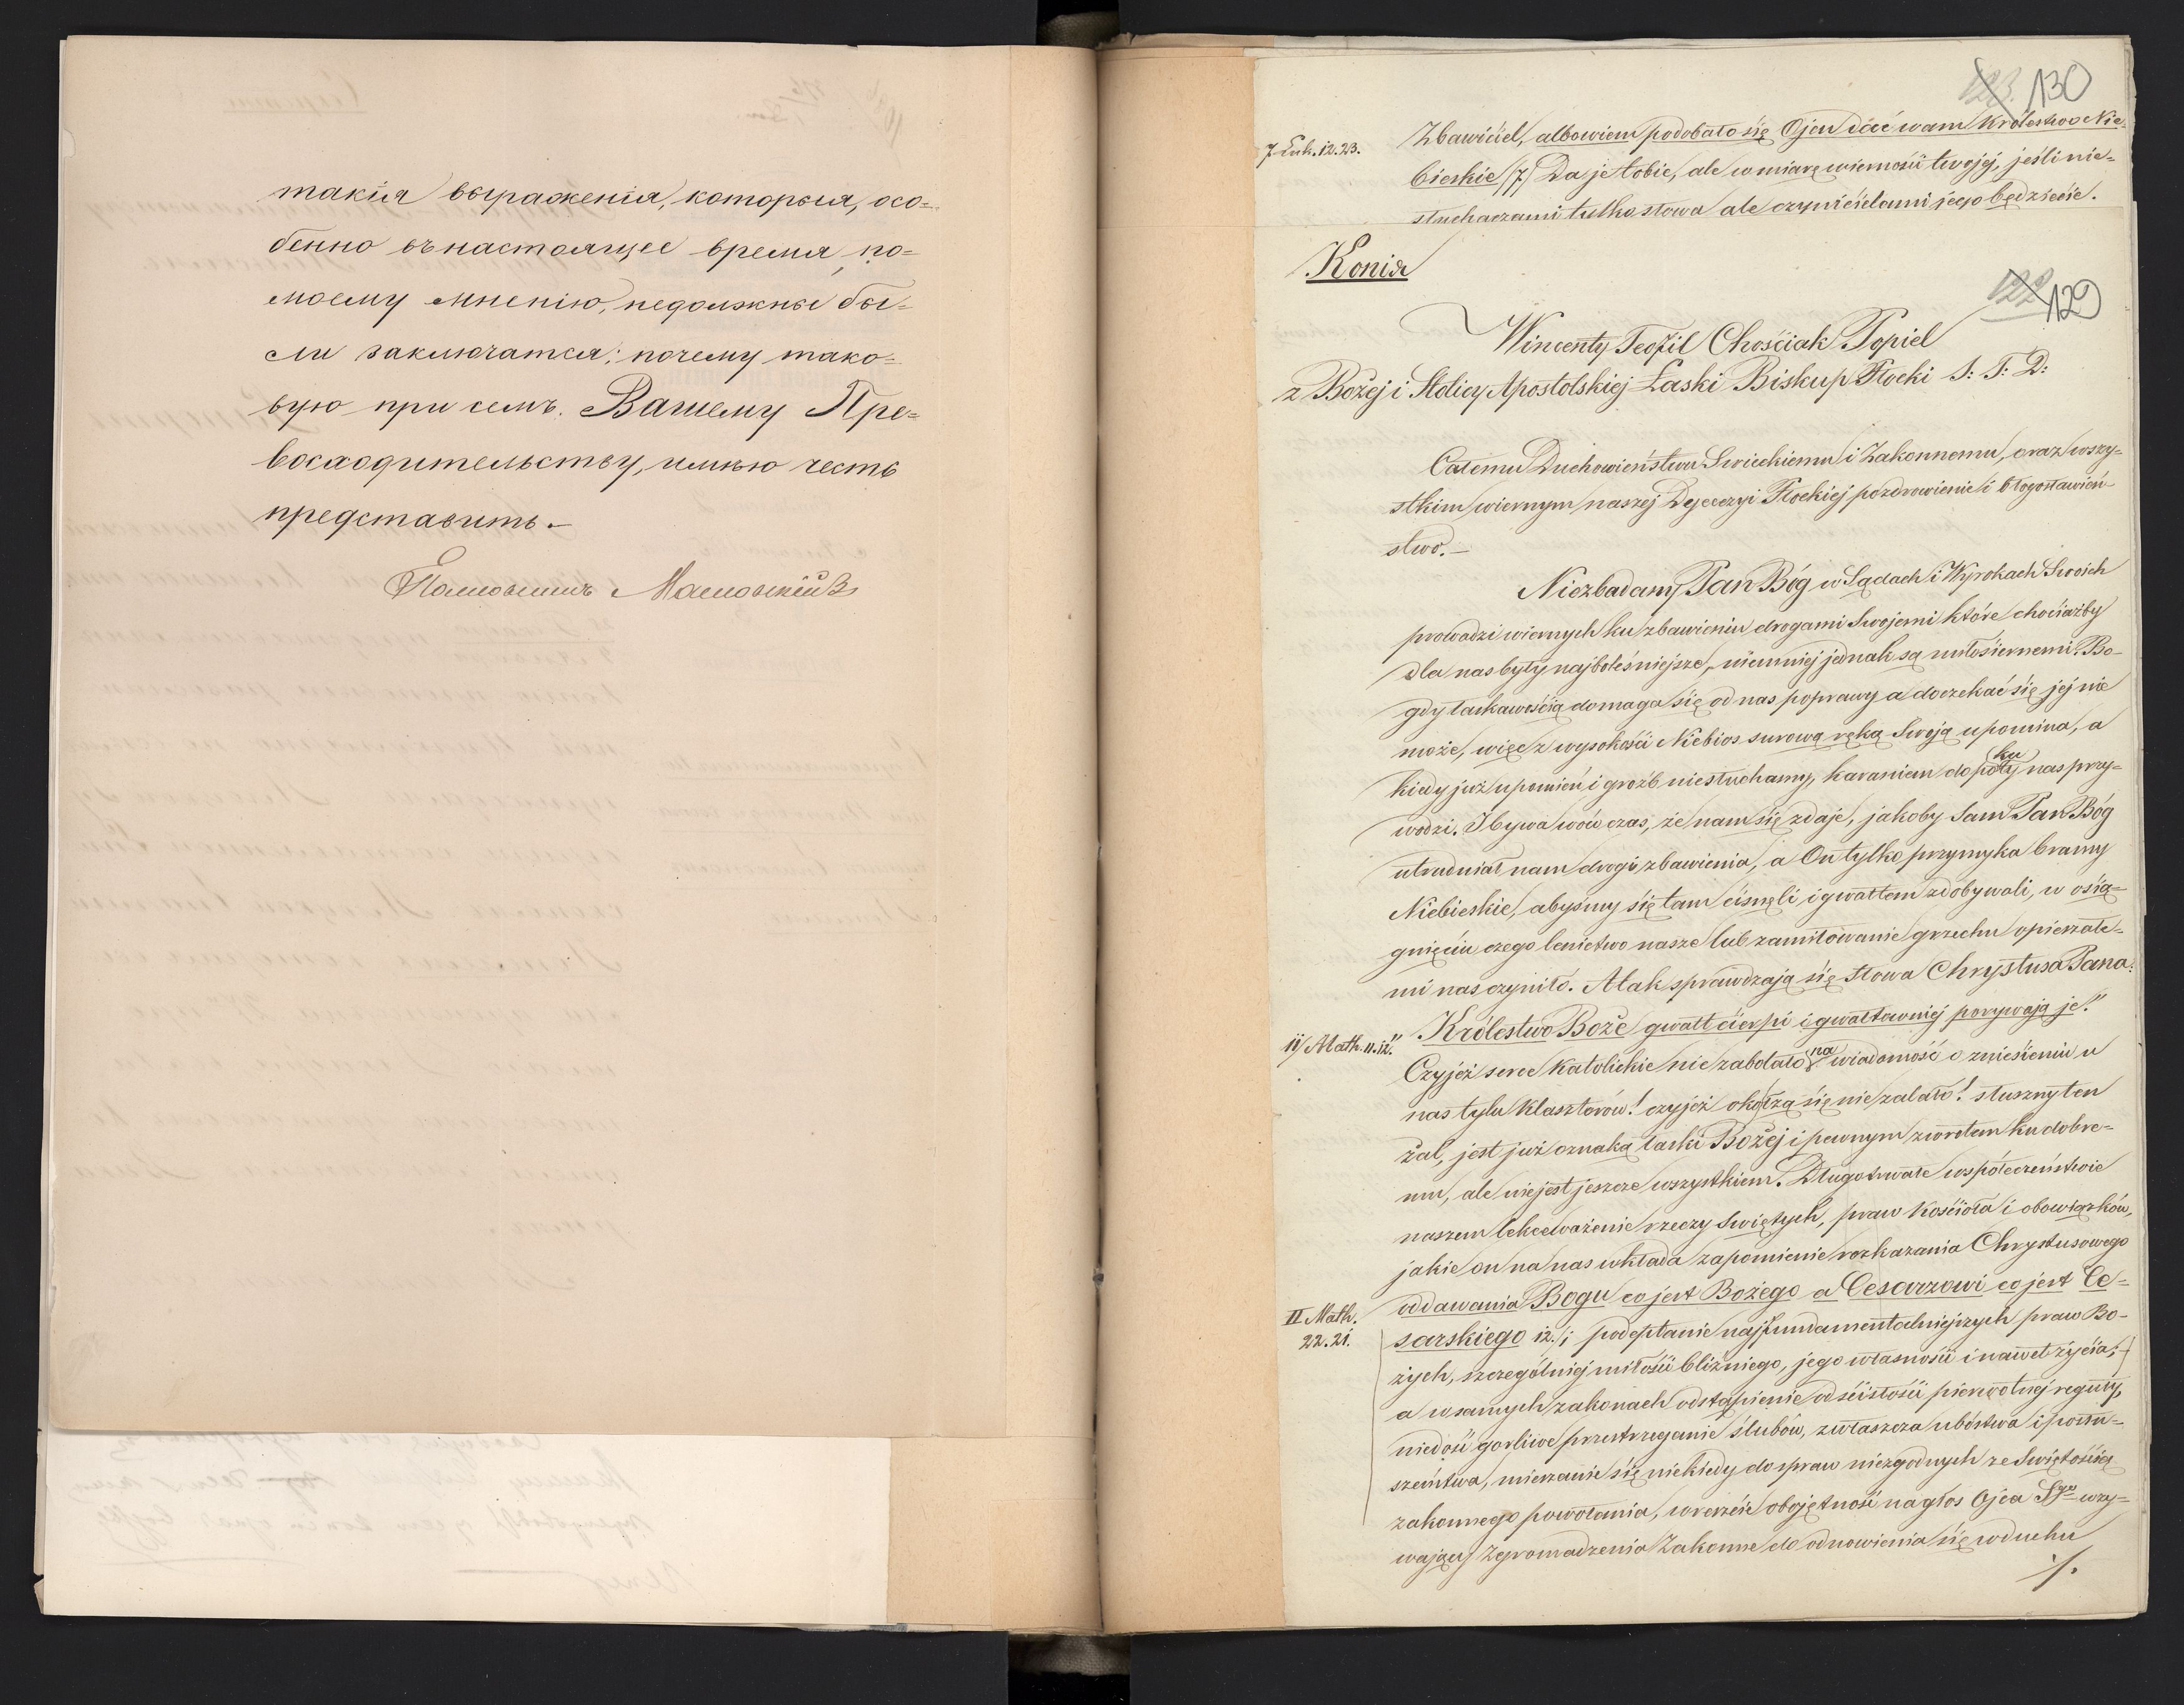 такія выраженія, которыя, осо=
бенно въ настоящее время, по=
моему мнѣнію, недолжны бы=
ли заключатся; почему тако=
вую при семъ Вашему Пре=
восходительству, имѣю честь
представить.—
Полковникъ
123. 130
7 Luk. 12.23. Zbawiciel, albowiem podobało się Ojcu dać wam Królestwo Nie=
bieskie /7/ Da je tobie, ale w miarę wierności twojej, jeśli nie=
słuchaczami tylko słowa ale czynicielami jego będziecie.
Kopia
122 129
Wincenty Teofil Chościak Popiel
z Bożej i Stolicy Apostolskiej Łaski Biskup Płocki S: T: D:
Całemu Duchowieństwu Swieckiemu i Zakonnemu, oraz wszy=
stkim wiernym naszej Dyecezyi Płockiej pozdrowienie i błogosławień=
stwo.—
Niezbadany Pan Bóg w Sądach i Wyrokach Swoich
prowadzi wiernych ku zbawieniu drogami Swojemi które chociażby
dla nas były najboleśniejsze, niemniej jednak są miłosiernemi. Bo-
gdy łaskawością domaga się od nas poprawy a doczekać się jej nie
może, więc z wysokości Niebios surową ręką Swoją upomina, a
kiedy już upomień i gróźb niesłuchamy, karaniem do poku ty nas przy=
wodzi. I bywa wówczas, że nam się zdaje, jakoby Sam Pan Bóg
utrudniał nam drogi zbawienia, a On tylko przymyka bramy
Niebieskie, abyśmy się tam cisnęli i gwałtem zdobywali, w osią=
gnięciu czego lenictwo nasze lub zamiłowanie grzechu opieszałe=
mi nas czyniło. A tak sprawdzają się słowa Chrystusa Pana:
ii/ Math. 11.12. "Królestwo Boże gwałt cierpi i gwałtowniej porywają je!"
Czyjeż serce Katolickie nie zabolało na wiadomość o zniesieniu u
nas tylu Klasztorów! czyjeż oko łzą się nie zalało! słuszny ten
żal, jest już oznaką łaski Bożej i pewnym zwrotem ku dobre=
mu, ale nie jest jeszcze wszystkiem. Długotrwałe w społeczeństwie
naszem lekceważenie rzeczy Świętych, praw Kościoła i obowiązków,
jakie on na nas wkłada zapomienie rozkazania Chrystusowego
II Math. oddawania Bogu co jest Bożego a Cesarzowi co jest Ce=
22. 21. sarskiego i2./; podeptanie najfundamentalniejszych praw Bo-
żych, szczególniej miłości bliźniego, jego własności i nawet życia;
a w samych zakonach odstąpienie od ścisłości pierwotnej reguły,
niedość gorliwe przestrzeganie ślubów, zwłaszcza ubóstwa i posłu=
szeństwa, mieszanie się niekiedy do spraw niezgodnych ze Swiętością
zakonnego powołania, wreszcie obojętność na głos Ojca Sgo wzy=
wający Zgromadzenia Zakonne do odnowienia się w duchu
./.